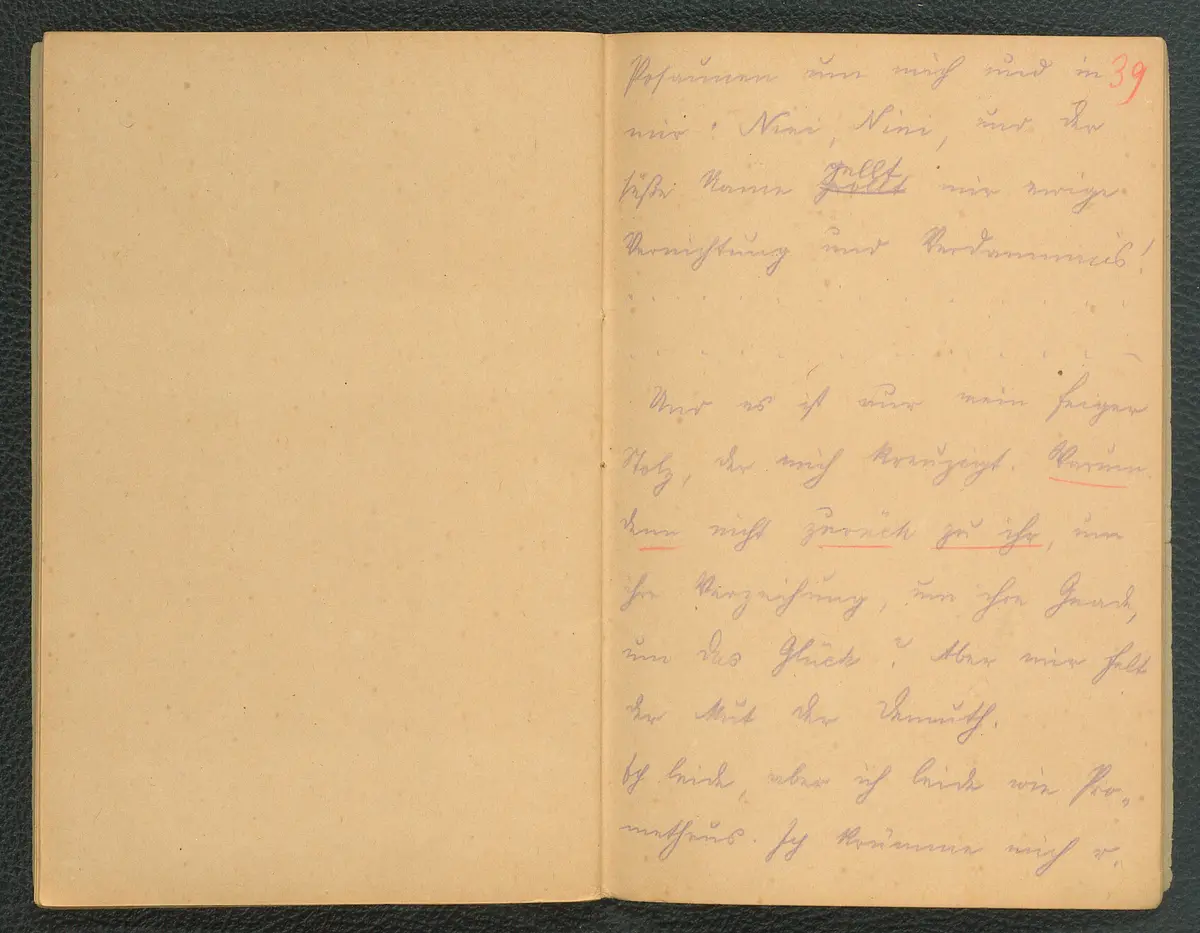 Posaunen um mich und in 39
mir: Nini, Nini, und der
süße Name gellt mir ewige
Vernichtung und Verdammnis!
Und es ist nur mein feiger
Stolz, der mich kreuzigt. Warum
denn nicht zurück zu ihr, um
ihre Verzeihung, um ihre Gnade,
um das Glück? Aber mir fehlt
der Mut der Demuth.
Ich leide, aber ich leide wie Pro-
metheus. Ich krümme mich